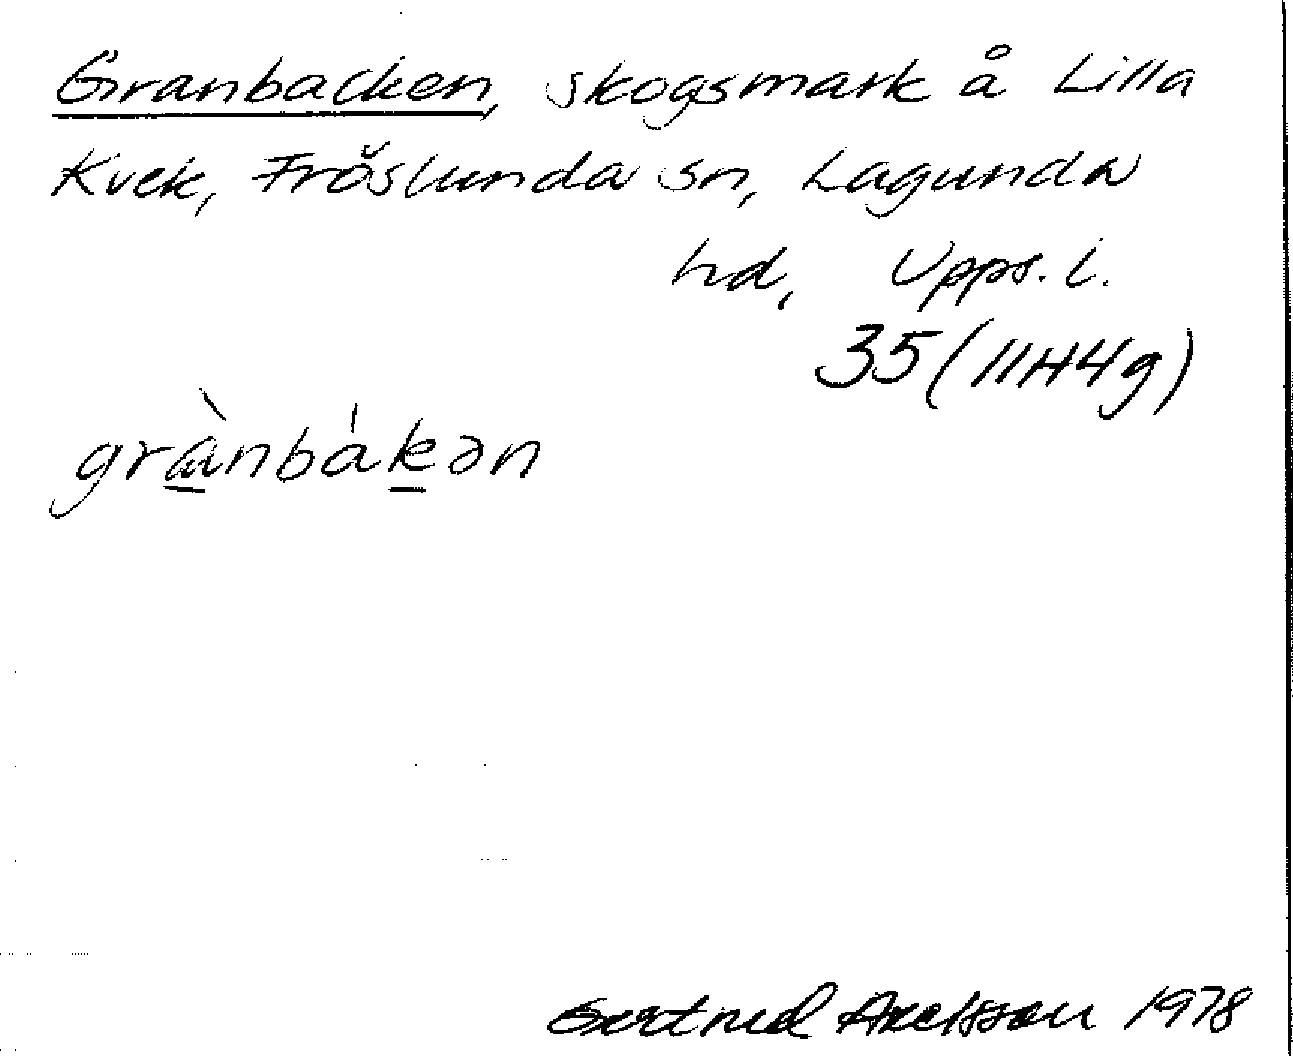 Granbacken, skogsmark å Lilla
Kvek, Fröslunda sn, Lagunda
hd, Upps. l.
35 (11H4g)
grànbákən
Gertrud Axelsson 1978